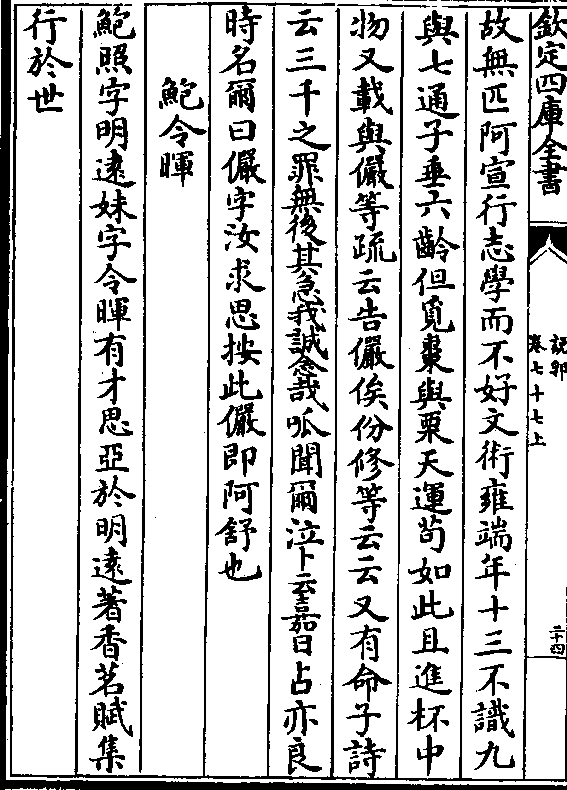 欽定四庫全書
說郛
卷七十七上
二十四
故無匹阿宣行志學而不好文術雍端年十三不識九
與七通子垂六齡但覓棗與栗天運茍如此且進杯中
物又載與儼等疏云告儼俟份修等云云又有命子詩
云三千之罪無後其急我誠念哉呱聞爾泣卜云嘉日占亦良
時名爾曰儼字汝求思按此儼即阿舒也
鮑令暉
鮑照字明遠妹字令暉有才思亞於明遠著香茗賦集
行於世